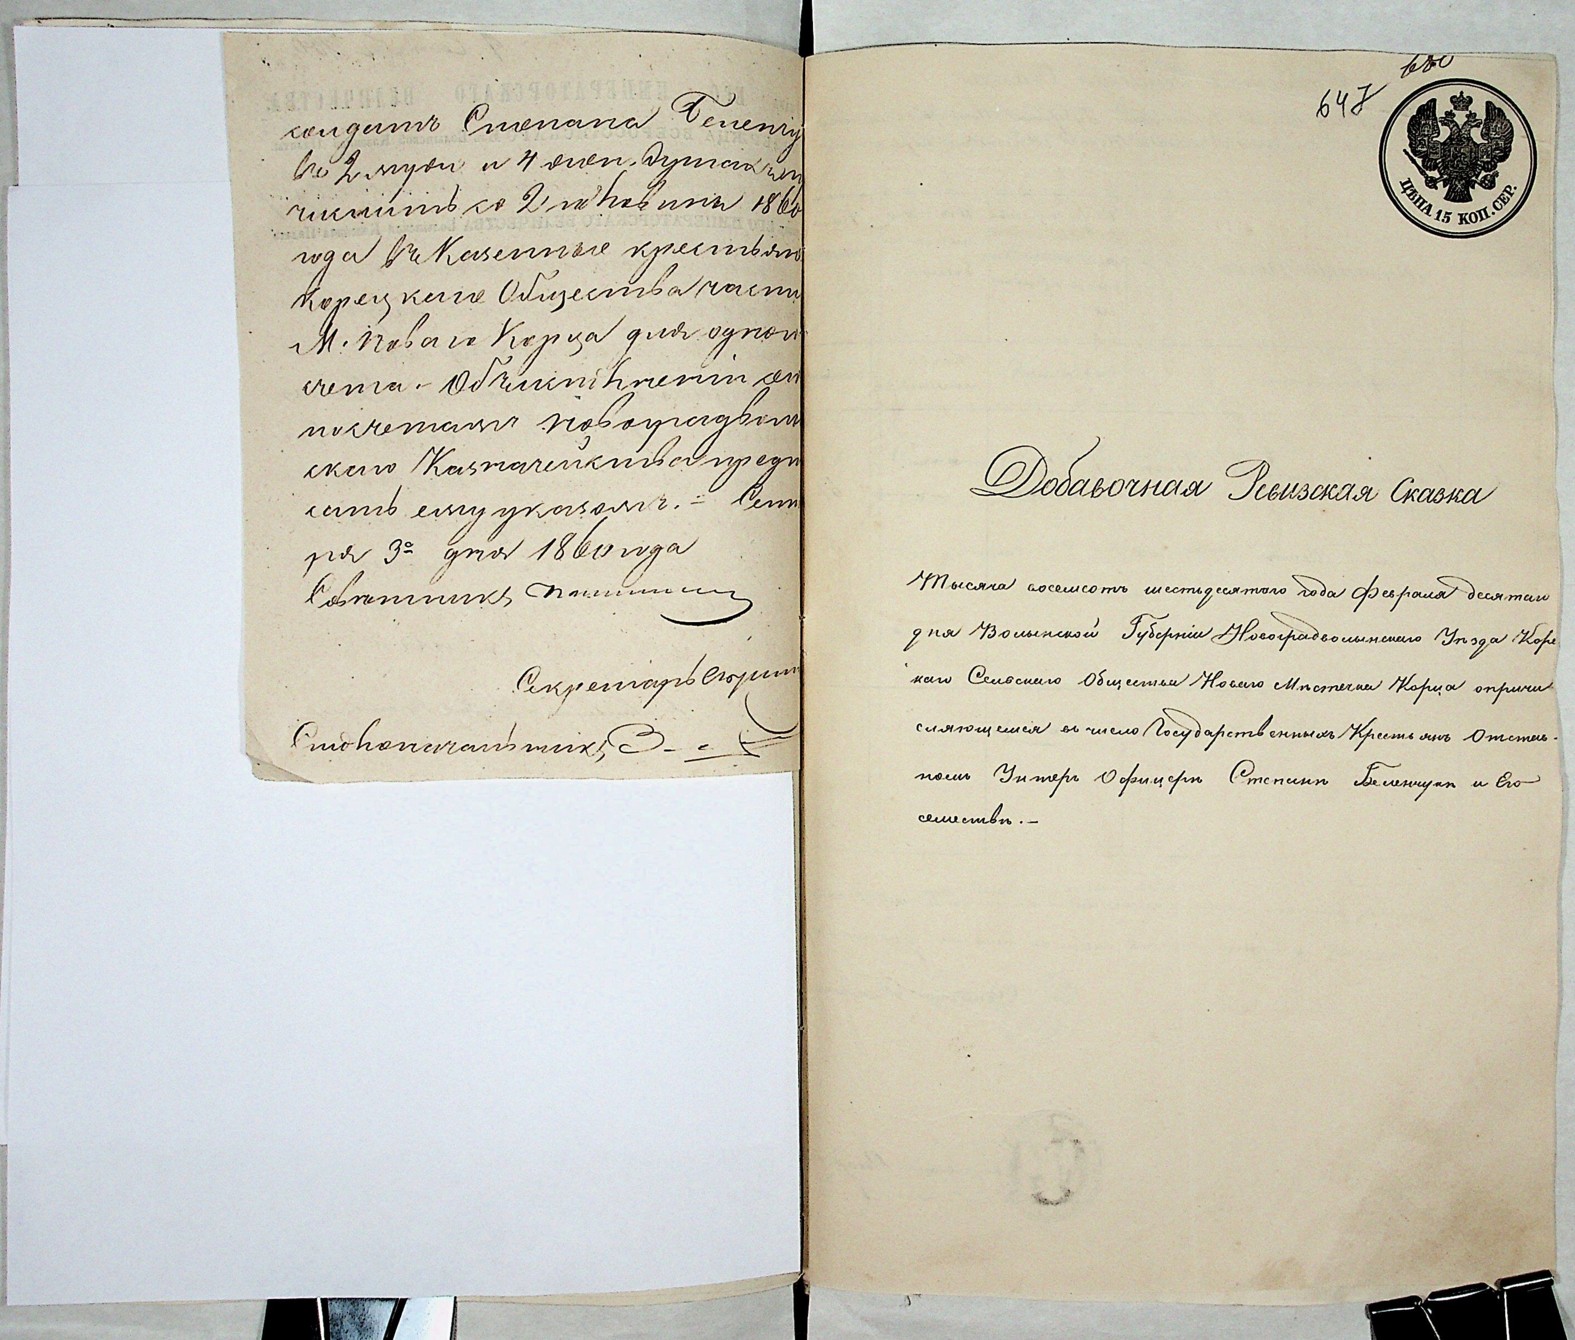 солдатъ Степана Беленчу
въ 2 муж и 4 жен. душах
числить со 2 половины 1860
года въ Казенные крестьян
Корецкаго Общества части
М. Новаго Корца для одного
счета. Объ
по счетамъ Новоградволын
скаго Казначейства предп
сать ему указомъ. – Сент
ря 3го дня 1860 года
Совѣтникъ
Секретарь
Столоначальникъ
647
680
ЦѢНА 15 КОП. СЕР.
Добавочная Ревизская Сказка
Тысяча восемсотъ шестдесятого года Февраля десятаго
дня Волынской Губерніи Новоградволынскаго Уѣзда Коре
каго Сельскаго Общества Новаго Мѣстечка Корца опричи
сляющемся въ число Государственныхъ Крестьянъ Отстав-
номъ Унтеръ Офицерѣ Степанѣ Беленчукѣ и Его
семействѣ. –